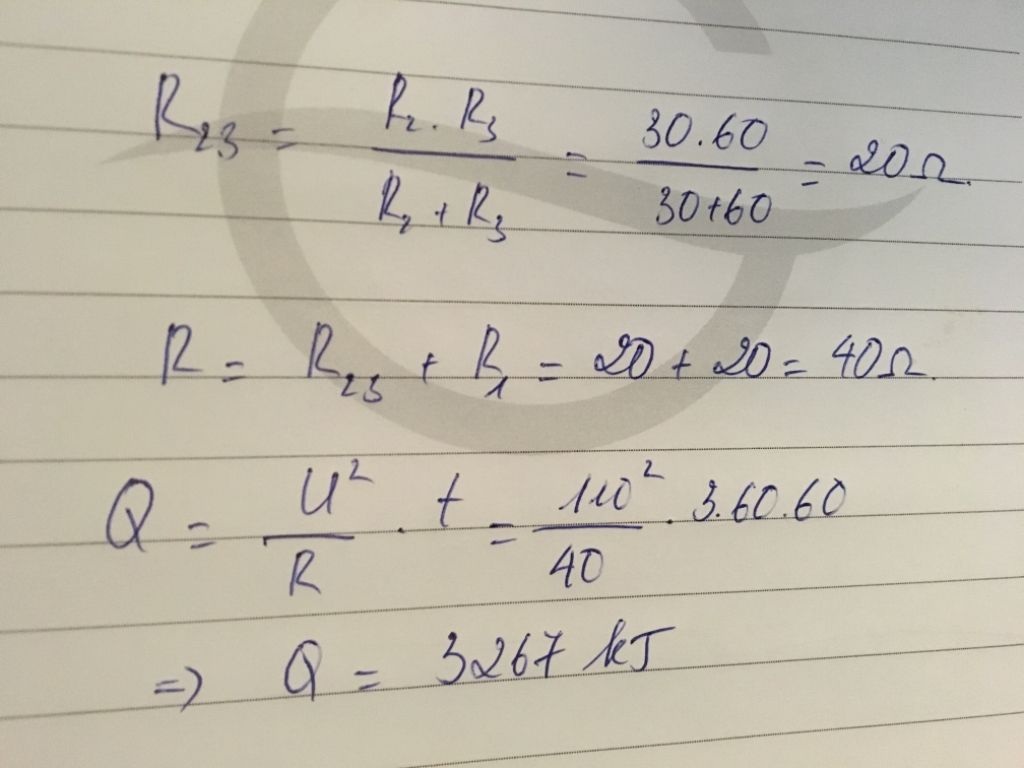 R₂₃ = R₂ . R₃ / R₂ + R₃ = 30.60 / 30+60 = 20Ω.
R = R₂₃ + R₁ = 20 + 20 = 40Ω.
Q = U² / R . t = 110² / 40 . 3.60.60
=> Q = 3267 kJ